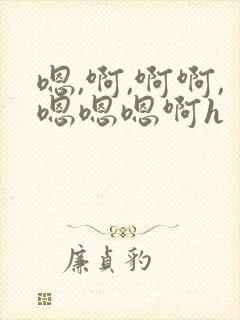 嗯,啊,啊啊,
嗯嗯嗯啊h
廉贞豹